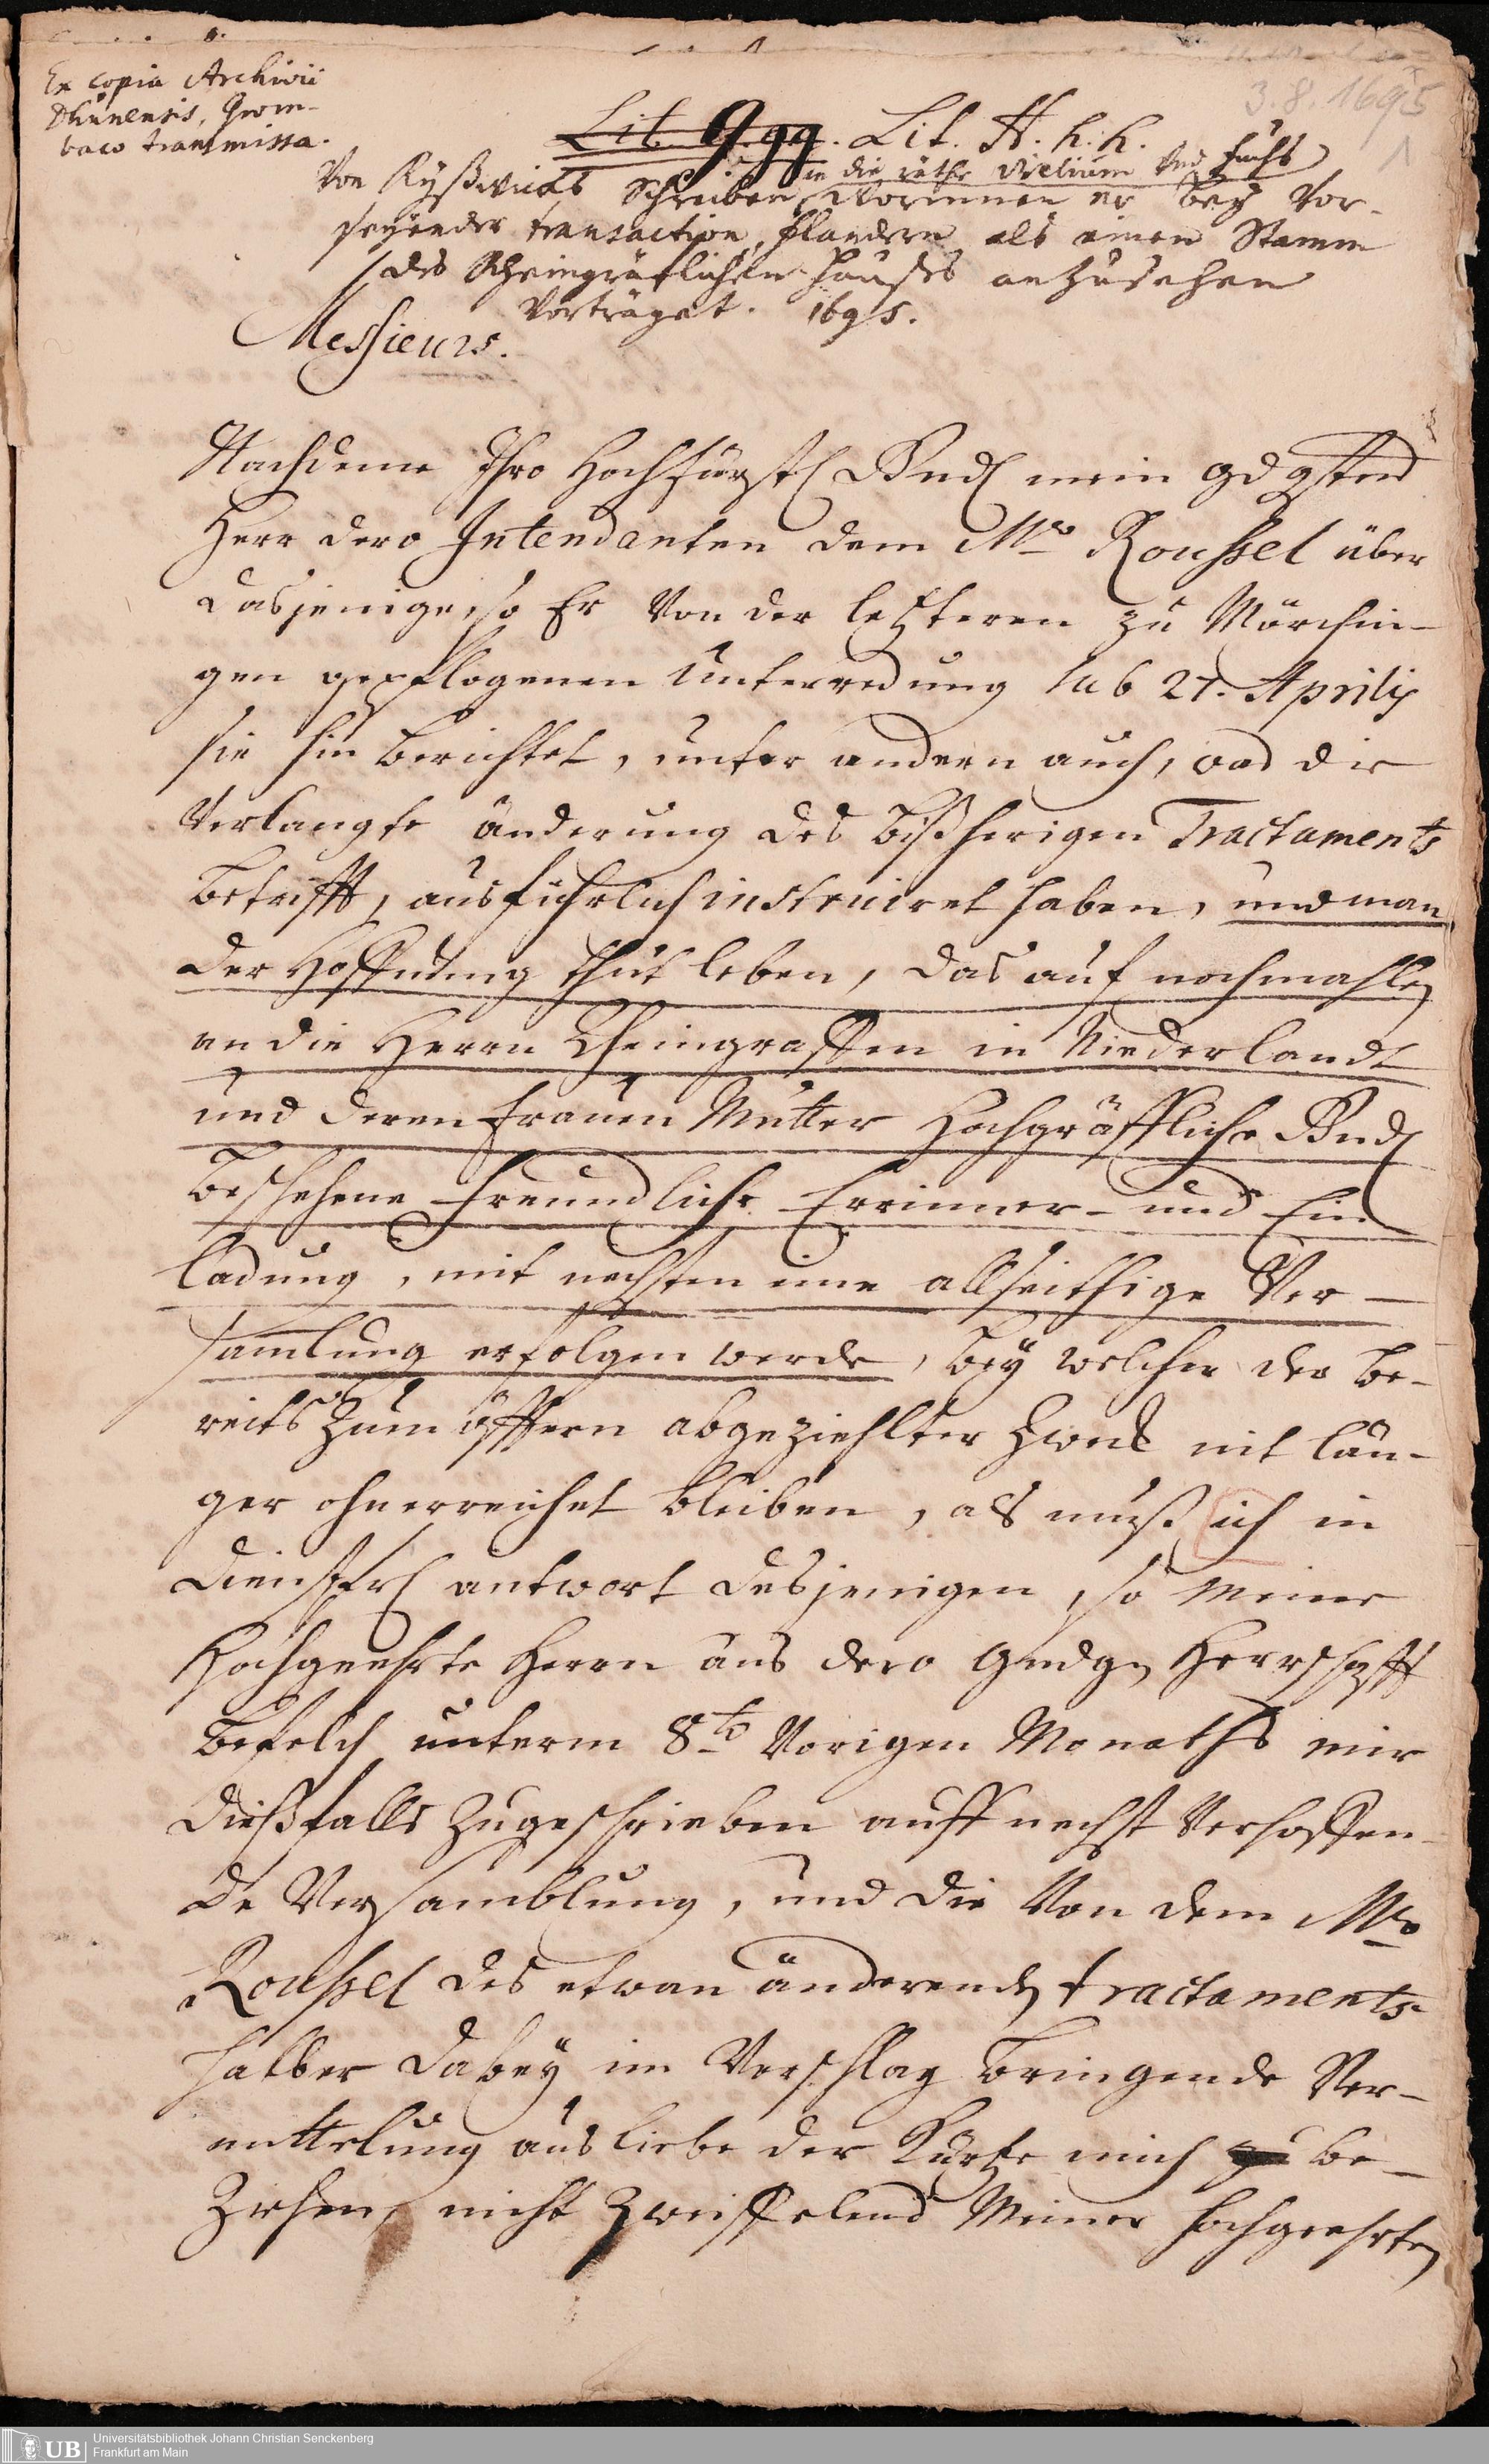 Ex copia Archivii
Dhunensis, Grom-
baco transmissa.
3.8.1695
1
Lit. Ggg. Lit. H.h.h.
in die räthe Vietium Und Fuchs
Von Ryßwicks Schreiben, Worinnen er bey Vor-
seyender transaction, flandern als einen Stamm
des Rheingräflichen Hauses anzusehen
Vorträget. 1695.
Messieurs.
Nachdeme Ihro Hochfürstl Gnd mein gdgsten
Herr dero Intendanten dem Mr Roussel über
dasjenige, so Er Von der letzteren zu Mörchin-
gen gepflogenen Unterredung sub 27. Aprilis
hie hin berichtet, unter andern auch, was die
Verlangte änderung des bißherigen Tractaments
betrifft, ausführlich instruiret haben, und man
der Hoffnung thut leben, das auf nochmahlen
an die Herrn Rheingraffen in Niederlandt
und deren Frauen Mutter Hochgräffliche Gnd
beschehene freundliche Errinner- und Ein
ladung, mit nechsten eine allseithige Ver-
samlung erfolgen werde, bey welcher der be-
reits zum öfftern abgeziehlter Zweck nit län-
ger ohnerreichet bleiben, als muß ich in
dienstl antwort desjenigen, so Meine
Hochgeehrte Herrn aus dero gndgn Herrschafft
befelch unterm 8ten Vorigen Monaths mir
dießfalls zugeschrieben auff nechst Verhoffen-
de Versamblung, und die Von dem Mr
Roussel des etwan änderenden tractaments
halber dabey im Vorschlag bringende Ver-
mittelung aus liebe der Kürtze mich zu be-
ziehen, nicht zweiffelend Meine hochgeehrten
Universitätsbibliothek Johann Christian Senckenberg
Frankfurt am Main